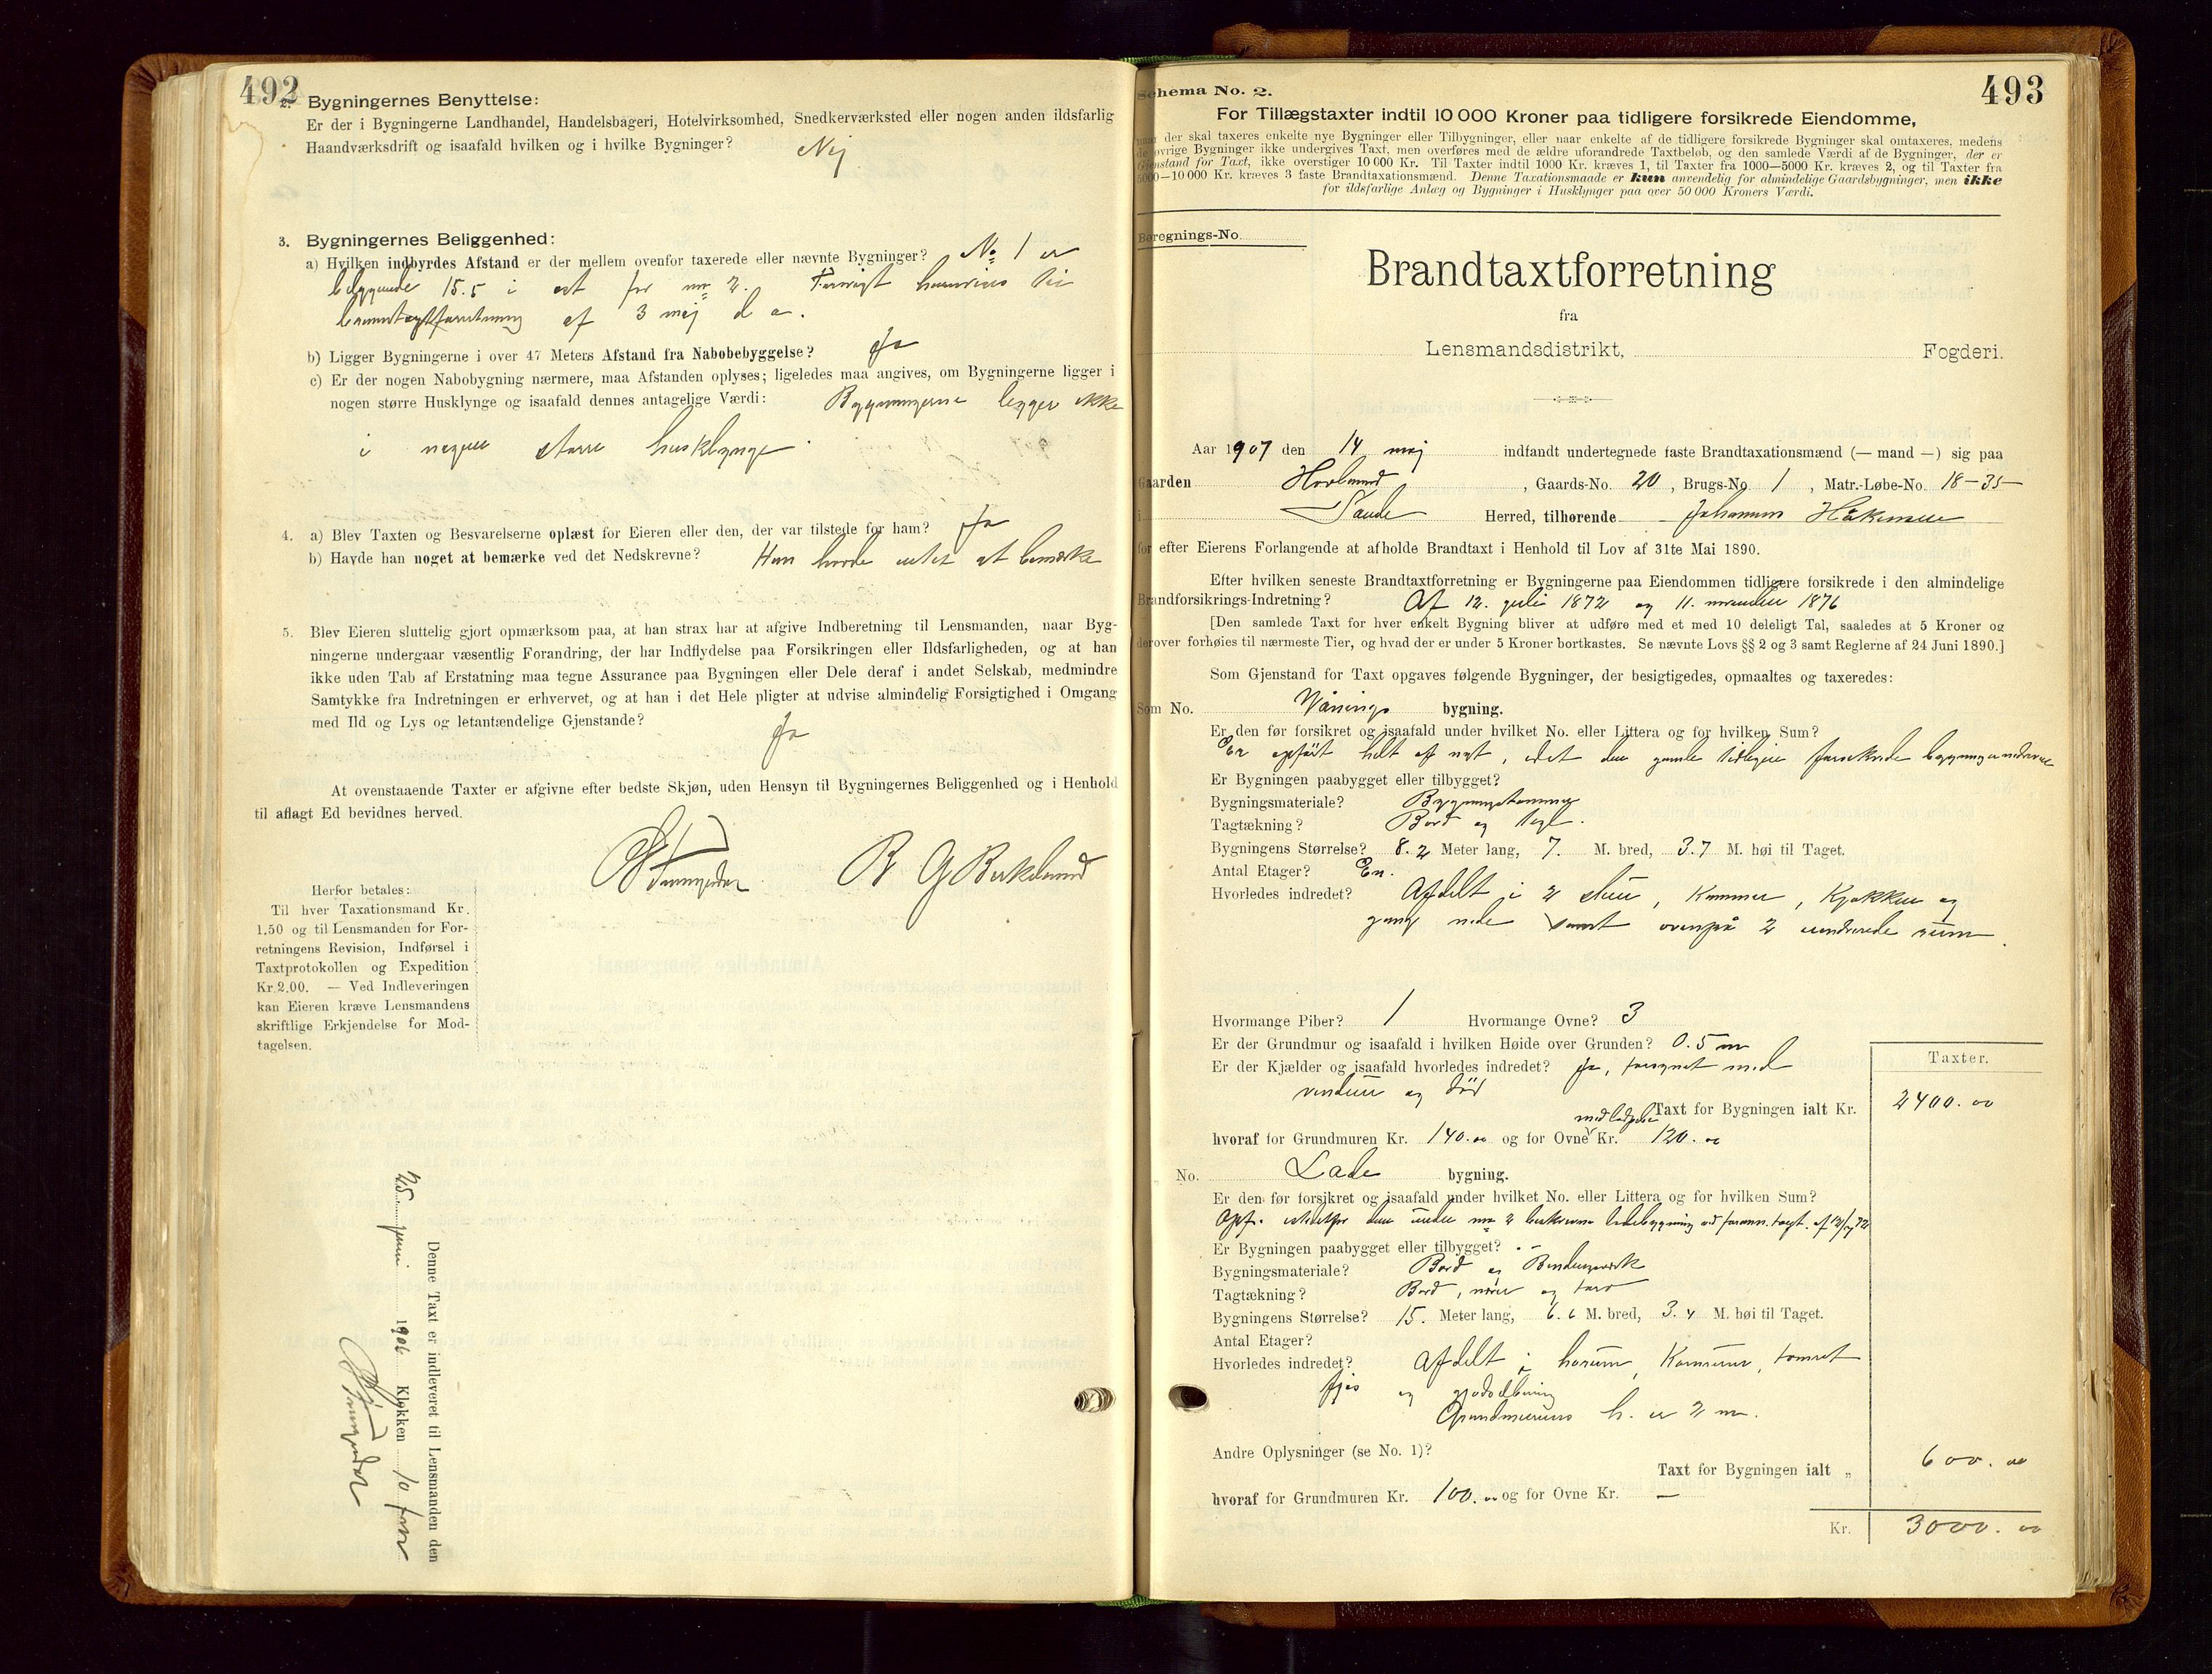 492
2. Bygningernes Benyttelse:
Er der i Bygningerne Landhandel, Handelsbageri, Hotelvirksomhed, Snedkerværksted eller nogen anden ildsfarlig
Haandværksdrift og isaafald hvilken og i hvilke Bygninger? Nej
3. Bygningernes Beliggenhed:
a) Hvilken indbyrdes Afstand er der mellem ovenfor taxerede eller nævnte Bygninger? No 1 er
beliggende 15.5 i øst for no 2. Forøvrigt henvises til
branntaxtforretning af 3 mej d a.
b) Ligger Bygningerne i over 47 Meters Afstand fra Nabobebyggelse? Ja
c) Er der nogen Nabobygning nærmere, maa Afstanden oplyses; ligeledes maa angives, om Bygningerne ligger i
nogen større Husklynge og isaafald dennes antagelige Værdi: Bygningerne ligger ikke
i nogen større husklynge.
4. a) Blev Taxten og Besvarelserne oplæst for Eieren eller den, der var tilstede for ham? Ja
b) Havde han noget at bemærke ved det Nedskrevne? Han havde intet at bemærke
5. Blev Eieren sluttelig gjort opmærksom paa, at han strax har at afgive Indberetning til Lensmanden, naar Byg-
ningerne undergaar væsentlig Forandring, der har Indflydelse paa Forsikringen eller Ildsfarligheden, og at han
ikke uden Tab af Erstatning maa tegne Assurance paa Bygningen eller Dele deraf i andet Selskab, medmindre
Samtykke fra Indretningen er erhvervet, og at han i det Hele pligter at udvise almindelig Forsigtighed i Omgang
med Ild og Lys og letantændelige Gjenstande?
Ja
At ovenstaaende Taxter er afgivne efter bedste Skjøn, uden Hensyn til Bygningernes Beliggenhed og i Henhold
til aflagt Ed bevidnes herved.
B G Birkeland
Herfor betales:
Til hver Taxationsmand Kr.
1.50 og til Lensmanden for For-
retningens Revision, Indførsel i
Taxtprotokollen og Expedition
Kr. 2.00. — Ved Indleveringen
kan Eieren kræve Lensmandens
skriftlige Erkjendelse for Mod-
tagelsen.
Denne Taxt er indleveret til Lensmanden den
25 juni 1906 Klokken 10 form
493
Schema No. 2.
For Tillægstaxter indtil 10 000 Kroner paa tidligere forsikrede Eiendomme,
naar der skal taxeres enkelte nye Bygninger eller Tilbygninger, eller naar enkelte af de tidligere forsikrede Bygninger skal omtaxeres, medens
de øvrige Bygninger ikke undergives Taxt, men overføres med de ældre uforandrede Taxtbeløb, og den samlede Værdi af de Bygninger, der er
Gjenstand for Taxt, ikke overstiger 10 000 Kr. Til Taxter indtil 1000 Kr. kræves 1, til Taxter fra 1000—5000 Kr. kræves 2, og til Taxter fra
5000—10 000 Kr. kræves 3 faste Brandtaxationsmænd. Denne Taxationsmaade er kun anvendelig for almindelige Gaardsbygninger, men ikke
for ildsfarlige Anlæg og Bygninger i Husklynger paa over 50 000 Kroners Værdi.
Beregnings-No.
Brandtaxtforretning
fra
Lensmandsdistrikt, Fogderi.
Aar 1907 den 14 mej indfandt undertegnede faste Brandtaxationsmænd (— mand —) sig paa
Gaarden Hovland, Gaards-No. 20, Brugs-No. 1, Matr.-Løbe-No. 18-35-
i Saude Herred, tilhørende Johannes Håkonsen
for efter Eierens Forlangende at afholde Brandtaxt i Henhold til Lov af 31te Mai 1890.
Efter hvilken seneste Brandtaxtforretning er Bygningerne paa Eiendommen tidligere forsikrede i den almindelige
Brandforsikrings-Indretning? Af 12. juli 1872 og 11. november 1876
[Den samlede Taxt for hver enkelt Bygning bliver at udføre med et med 10 deleligt Tal, saaledes at 5 Kroner og
derover forhøies til nærmeste Tier, og hvad der er under 5 Kroner bortkastes. Se nævnte Lovs §§ 2 og 3 samt Reglerne af 24 Juni 1890.]
Som Gjenstand for Taxt opgaves følgende Bygninger, der besigtigedes, opmaaltes og taxeredes:
Som No. Vånings bygning.
Er den før forsikret og isaafald under hvilket No. eller Littera og for hvilken Sum?
Er opført helt af nyt, idet den gamle tidligere forsikrede bygning er nedrevet
Er Bygningen paabygget eller tilbygget?
Bygningsmateriale? Bygningstømmer
Tagtækning? Bord og tegl.
Bygningens Størrelse? 8.2 Meter lang, 7. M. bred, 3.7 M. høi til Taget.
Antal Etager? En.
Hvorledes indredet? Afdelt i 2 stuer, Kammer, Kjøkken og
gang nede samt ovenpå 2 uindredede rum
Hvormange Piber? 1 Hvormange Ovne? 3
Er der Grundmur og isaafald i hvilken Høide over Grunden? 0.5 m
Er der Kjælder og isaafald hvorledes indredet? Ja, forsynet med
vinduer og dør
Taxter.
Taxt for Bygningen ialt Kr. 2400.00
hvoraf for Grundmuren Kr. 140.00 og for Ovne Kr. 120.00
No. Lade bygning.
Er den før forsikret og isaafald under hvilket No. eller Littera og for hvilken Sum?
Opf. istedetfor den under no 2 beskrevne ladebygning ved taxt. af 12/7 72
Er Bygningen paabygget eller tilbygget? -
Bygningsmateriale? Bord og Bindingsverk
Tagtækning? Bord, næver og torv
Bygningens Størrelse? 15. Meter lang, 6.6 M. bred, 3.4 M. høi til Taget.
Antal Etager?
Hvorledes indredet? Afdelt i hørum, Kornrum, tomret
fjøs og gjødselbinge
Grundmurens h. er 2 m.
Andre Oplysninger (se No. 1)?
Taxt for Bygningen ialt „ 600.00
hvoraf for Grundmuren Kr. 100.00 og for Ovne Kr. —
Kr. 3000.00